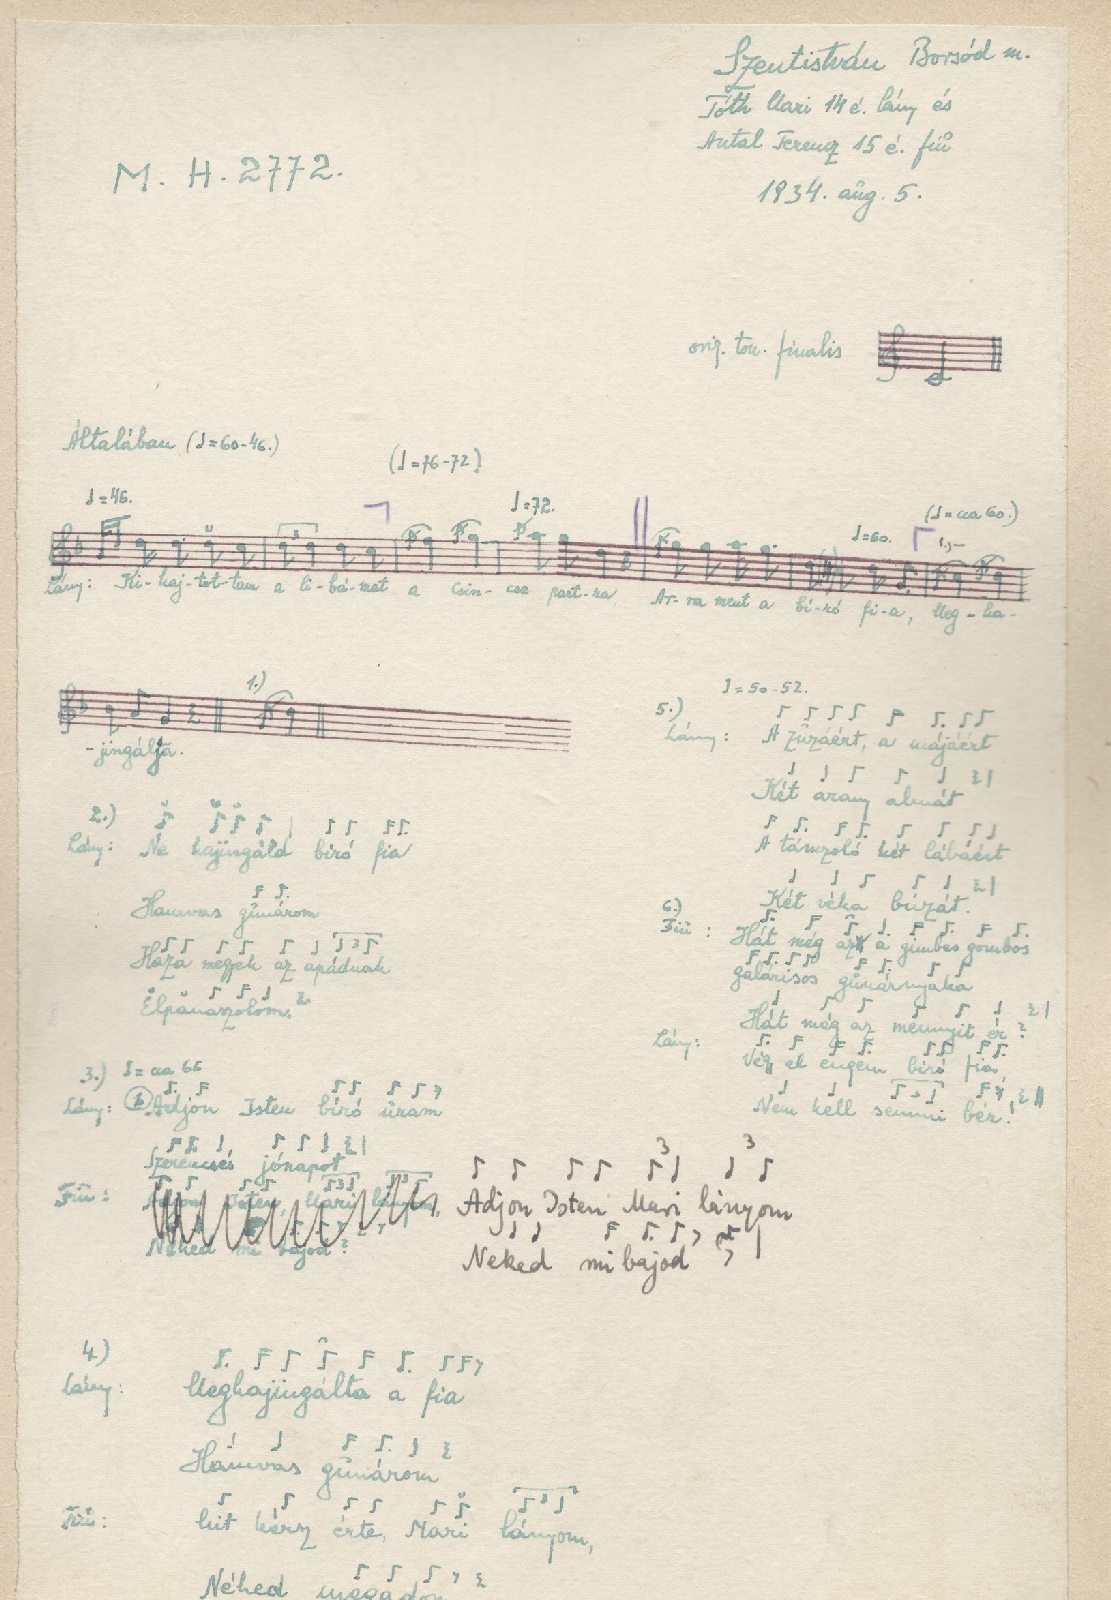 Szentistván Borsód m.
Tóth Mari 14 é. lány és
Antal Ferenc 15 é. fiű
1934. aűg. 5.
M. H. 2772.
orig. ton. finalis
Általában (♩=60-46.)
(♩=76-72)
♩=46.
♩=72.
♩=60.
(♩=ca 60.)
1.)
Lány: Ki-haj-tot-tam a li-bá-mat a csin-cse part-ra, Ar-ra ment a bí-ró fi-a, Meg-ha-
1.)
-jingálta.
2.)
Lány: Ne hajingáld bíró fia
Hamvas gűnárom
Haza megyek az apádnak
Elpanaszolom.
3.) ♩=ca 66
Lány: Adjon Isten bíró űram
Szerencsés jónapot
Fiű: Adjon Isten, Mari lányom,
Neked mi bajod?
Adjon Isten Mari lányom
Neked mi bajod
4.)
Lány: Meghajingálta a fia
Hamvas gűnárom
Fiű: Mit kérsz érte, Mari lányom,
Néked megadom
5.) ♩=50-52.
Lány: A zűzáért, a májáért
Két arany almát
A táncoló két lábáért
Két véka búzát.
6.)
Fiű: Hát még az a gimbes gombos
galárisos gűnárnyaka
Hát még az mennyit ér?
Lány: Végy el engem bíró fia,
Nem kell semmi bér!